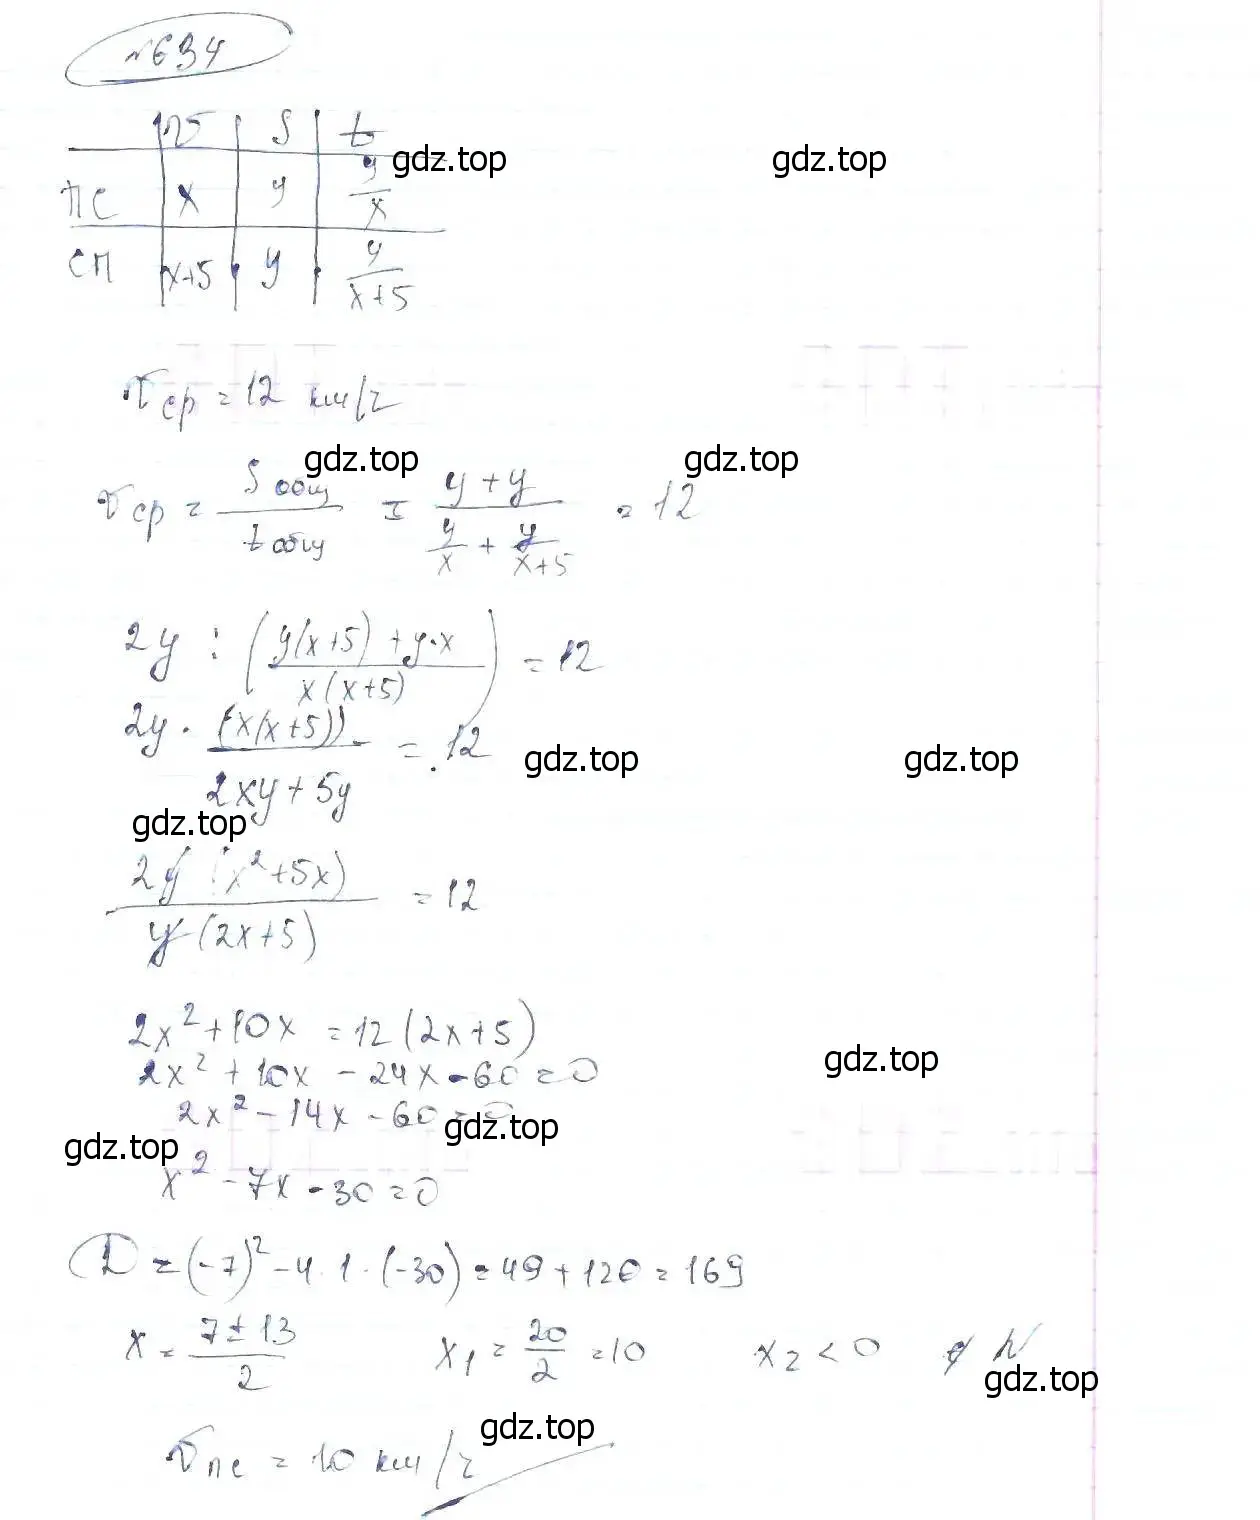 №634
v S t
ПС x y y/x
СП x+5 y y/(x+5)
gdz.top gdz.top
vср = 12 км/ч
gdz.top gdz.top
vср = Sобщ/tобщ = (y+y)/(y/x + y/(x+5)) = 12
2y : ((y(x+5)+y·x)/(x(x+5))) = 12
2y · (x(x+5))/(2xy+5y) = 12
gdz.top gdz.top
gdz.top
2y(x²+5x)/(y(2x+5)) = 12
2x²+10x = 12(2x+5)
2x²+10x-24x-60=0
gdz.top
2x²-14x-60=0
gdz.top gdz.top
x²-7x-30=0
D=(-7)²-4·1·(-30)=49+120=169
x = (7±13)/2 x₁ = 20/2 = 10 x₂<0 ∉ N
gdz.top
gdz.top
vпс = 10 км/ч